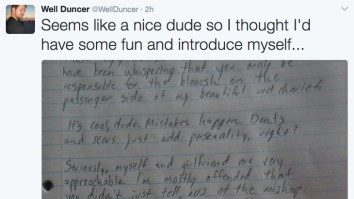 Well Duncer @WellDuncer · 2h
Seems like a nice dude so I thought I'd
have some fun and introduce myself...
have been whispering that you may be
responsible for the blemish on the
passenger side of my beautiful red chariot.
It's cool, dude. Mistakes happen. Dents
and scars just add personality, right?
Seriously, myself and girlfriend are very
approachable. I'm mostly offended that
you didn't just tell us of the mishap.